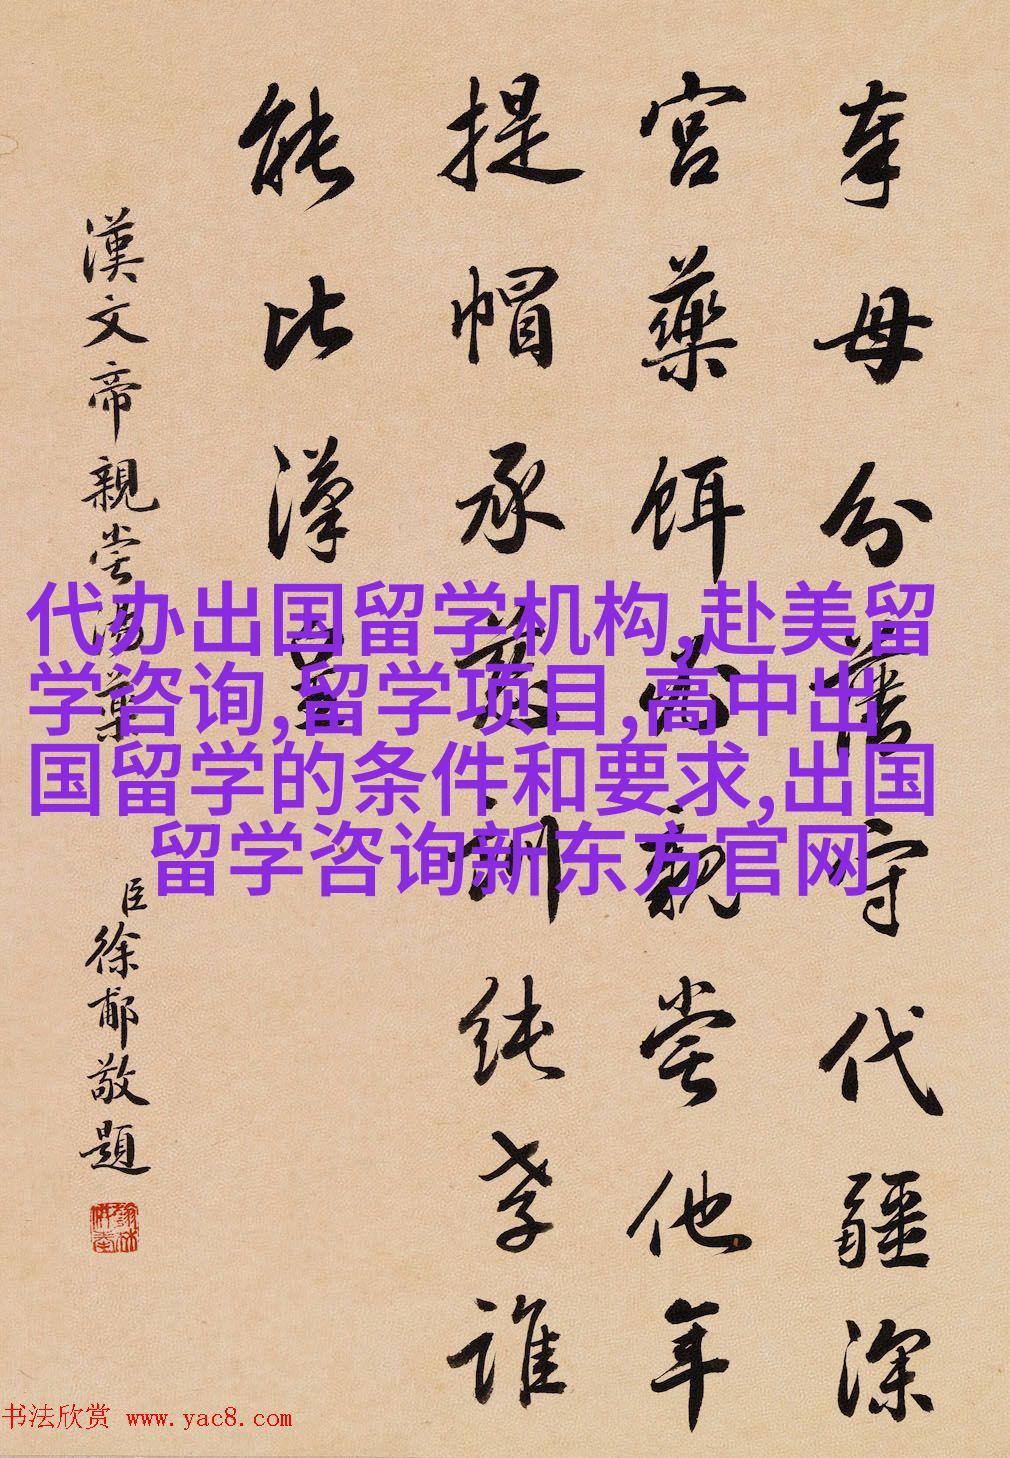 奉母分藩守代疆深
宮藥餌必親嘗他年
提帽承慈訓純孝誰
能比漢皇
漢文帝親嘗湯藥
臣徐郙敬題
代办出国留学机构,赴美留
学咨询,留学项目,高中出
国留学的条件和要求,出国
留学咨询新东方官网
书法欣赏 www.yac8.com